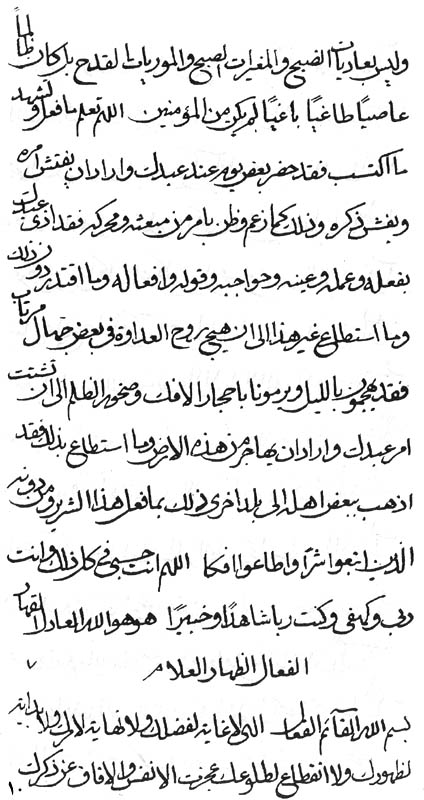 وليس بعاديات الضبح والمغيرات الصبح والموريات القدح بل كان ظالماً
عاصياً طاغياً باغياً لم يكن من المؤمنين اللهم تعلم ما فعل وتشهد
ما اكتسب فقد حضر بعض يوم عند عبدك واراد ان يفتش امره
ويفش ذكره وذلك كما زعم وظن بامر من مبعثه ومحركه فقد اذى عبدك
بفعله وعمله وعينه وحواجبه وقوله وافعاله وما اقتدر دون ذلك
وما استطاع غير هذا الى ان هيج بروح العداوة في بعض جهال مرتاب
فقد يهجمون بالليل ويرمونا باحجار الافك وصخور الظلم الى ان تشتت
امر عبدك واراد ان يهاجر من هذه الارض وما استطاع بذلك فقد
اذهب ببعض اهله الى بلد اخرى ذلك بما فعل هذا الشرير ومن دونه
الذين اتبعوا شراً واطاعوا افكا اللهم انت حسبي في كل ذلك وانت
ربي وكهفي وكنت ربا شاهداً وخبيراً هو هو الله العادل القهار
الفعال الظهار العلام
بسم الله القائم الفعال التي لا غاية لفضلك ولا نهاية لا ولا بداية
لظهورك ولا انقطاع لطلوعك عجزت الانفس والافاق عن ذكرك
١٠